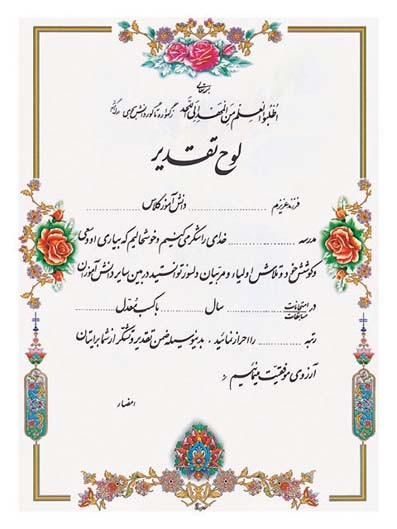 بسمه تعالی
اُطْلُبُوا الْعِلْمَ مِنَ الْمَهْدِ اِلَی اللَّحَدِ ز گهواره تا گور دانش بجوی
لوح تقدیر
فرزند عزیزم .................... دانش آموز کلاس ....................
مدرسه .................... خدای را شکر می‌کنیم و خوشحالیم که بیاری او و سعی
و کوشش خود و تلاش اولیاء و مربیان دلسوز توانستید در بین سایر دانش آموزان
در امتحانات
مسابقات .................... سال .................... با کسب معدل ....................
رتبه .................... را احراز نمائید . بدینوسیله ضمن تقدیر و تشکر از شما برایتان
آرزوی موفقیت مینمائیم
امضاء